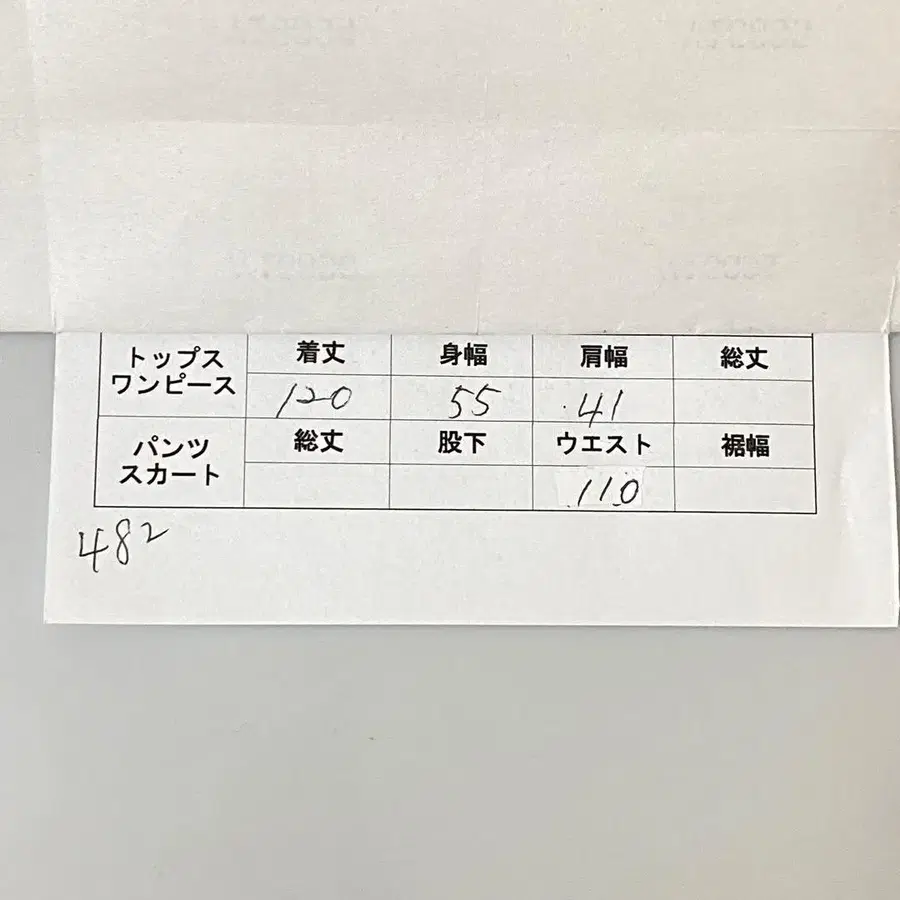 トップス
ワンピース
着丈 身幅 肩幅 総丈
120 55 41
パンツ
スカート
総丈 股下 ウエスト 裾幅
110
482